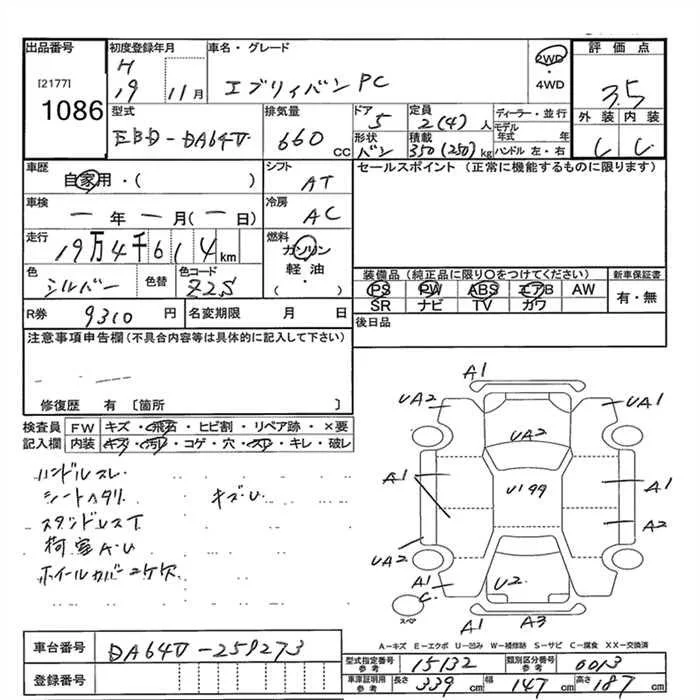 出品番号 初度登録年月 車名・グレード 評価点
[2177] 1086
H 19 11月 エブリィバン PC 2WD・4WD 3.5
型式 排気量 ドア 定員 ディーラー・並行 外装 内装
EBD-DA64V 660CC 5 2(4)人 モデル年式 年
形状 積載 ハンドル 左・右
バン 350(250)kg C C
車歴 シフト セールスポイント(正常に機能するものに限ります)
自家用・( ) AT
車検 冷房
一年一月(一日) AC
走行 燃料
19万4千614km ガソリン
軽油・
( )
色 色替 色コード
シルバー Z2S
装備品(純正品に限り○をつけてください) 新車保証書
PS PW ABS エアB AW 有・無
SR ナビ TV カワ
R券 9310円 名変期限 月 日 後日品
注意事項申告欄(不具合内容等は具体的に記入して下さい)
修復歴 有 〔箇所 〕
検査員 FW キズ・飛石・ヒビ割・リペア跡・×要
記入欄 内装 キズ・汚れ・コゲ・穴・スレ・キレ・破レ
ハンドルスレ
シートハタリ キズU
スタッドレスT
荷室A-U
ホイールカバー2ケ欠
A1
UA2 UA1
UA2
A1 U199 A1
A2
UA2
A1 U2 A1
C
スペア A1 A3
A-キズ E-エクボ U-凹み W-補修跡 S-サビ C-腐食 XX-交換済
車台番号 DA64V-259273
登録番号
型式指定番号 参考 15132 類別区分番号 参考 0013
車庫証明用 参考 長さ 339cm 幅 147cm 高さ 187cm